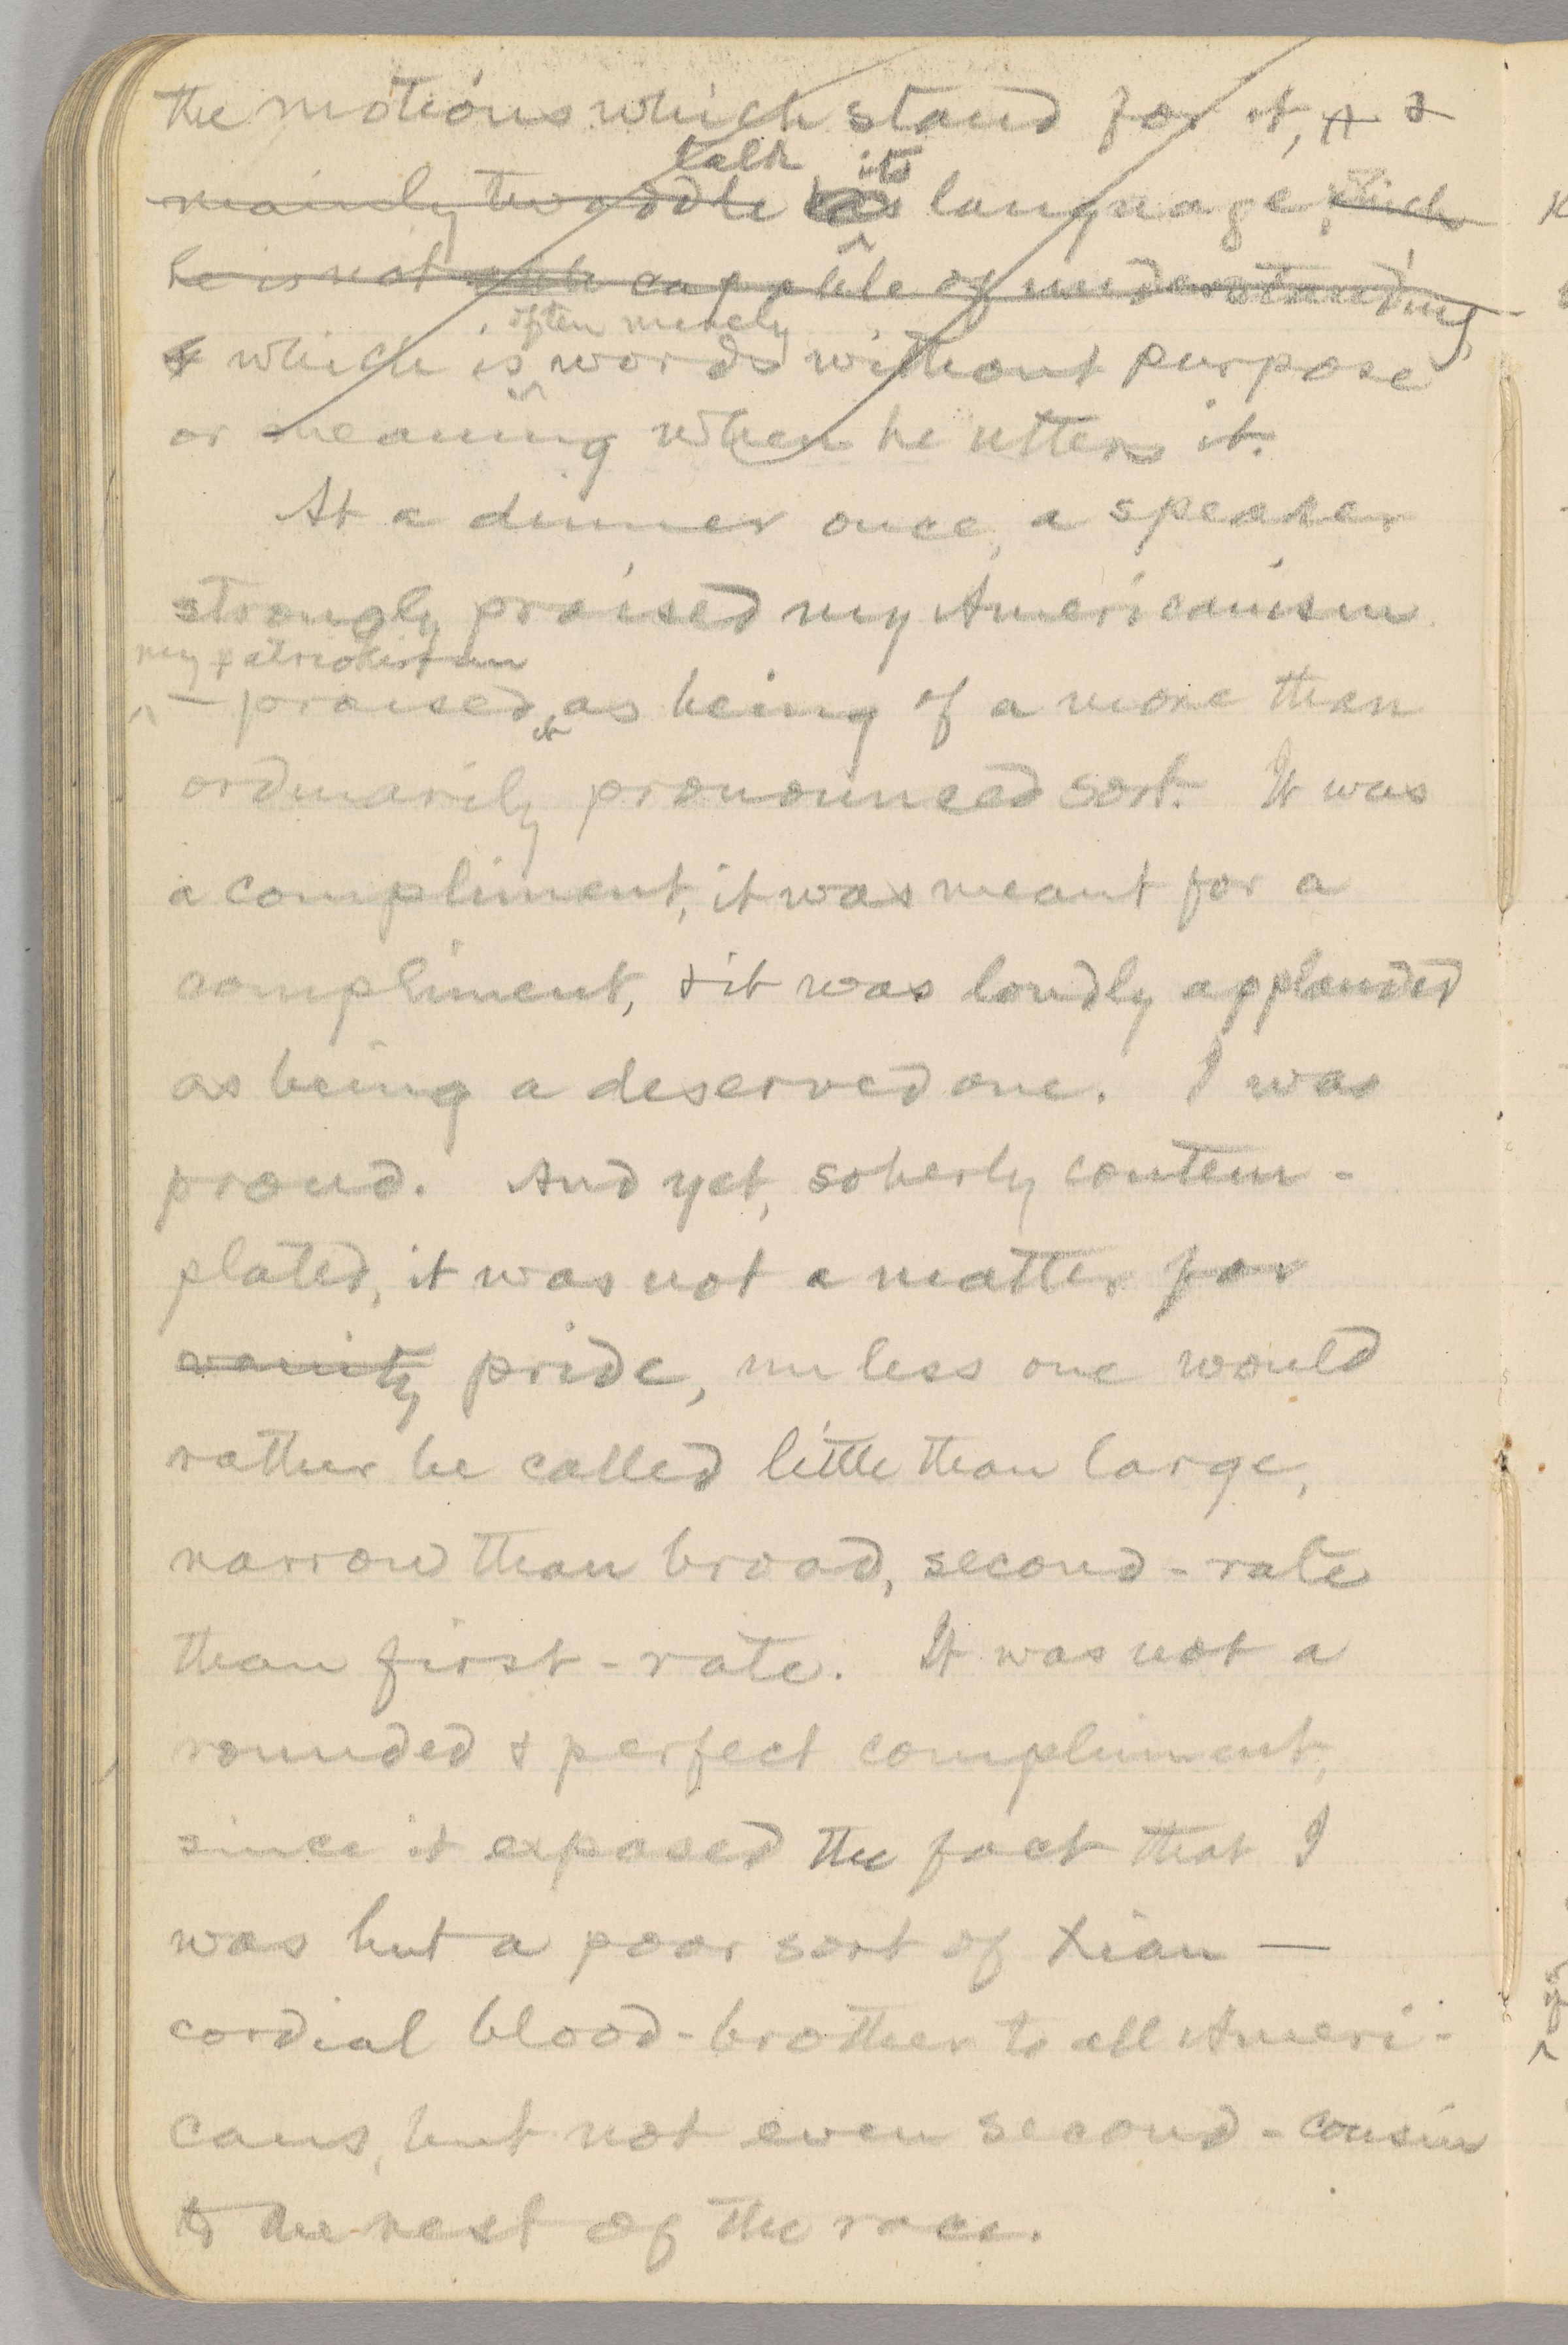 the motions which stand for it, &
talk its
mainly twaddle language, which
he is not capable of understanding,
often merely
& which is words without purpose
or meaning when he utters it.
At a dinner once, a speaker
strongly praised my Americanism
my patriotism
— praised it as being of a more than
ordinarily pronounced sort. It was
a compliment, it was meant for a
compliment, & it was loudly applauded
as being a deserved one. I was
proud. And yet, soberly contem-
plated, it was not a matter for
vanity pride, unless one would
rather be called little than large,
narrow than broad, second-rate
than first-rate. It was not a
rounded & perfect compliment,
since it exposed the fact that I
was but a poor sort of Xian —
cordial blood-brother to all Ameri-
cans, but not even second-cousin
to the rest of the race.